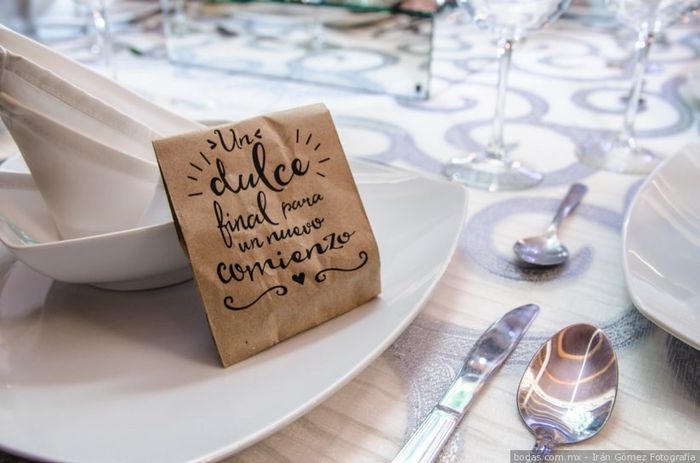 Un
dulce
final para
un nuevo
comienzo
bodas.com.mx - Irán Gómez Fotografía